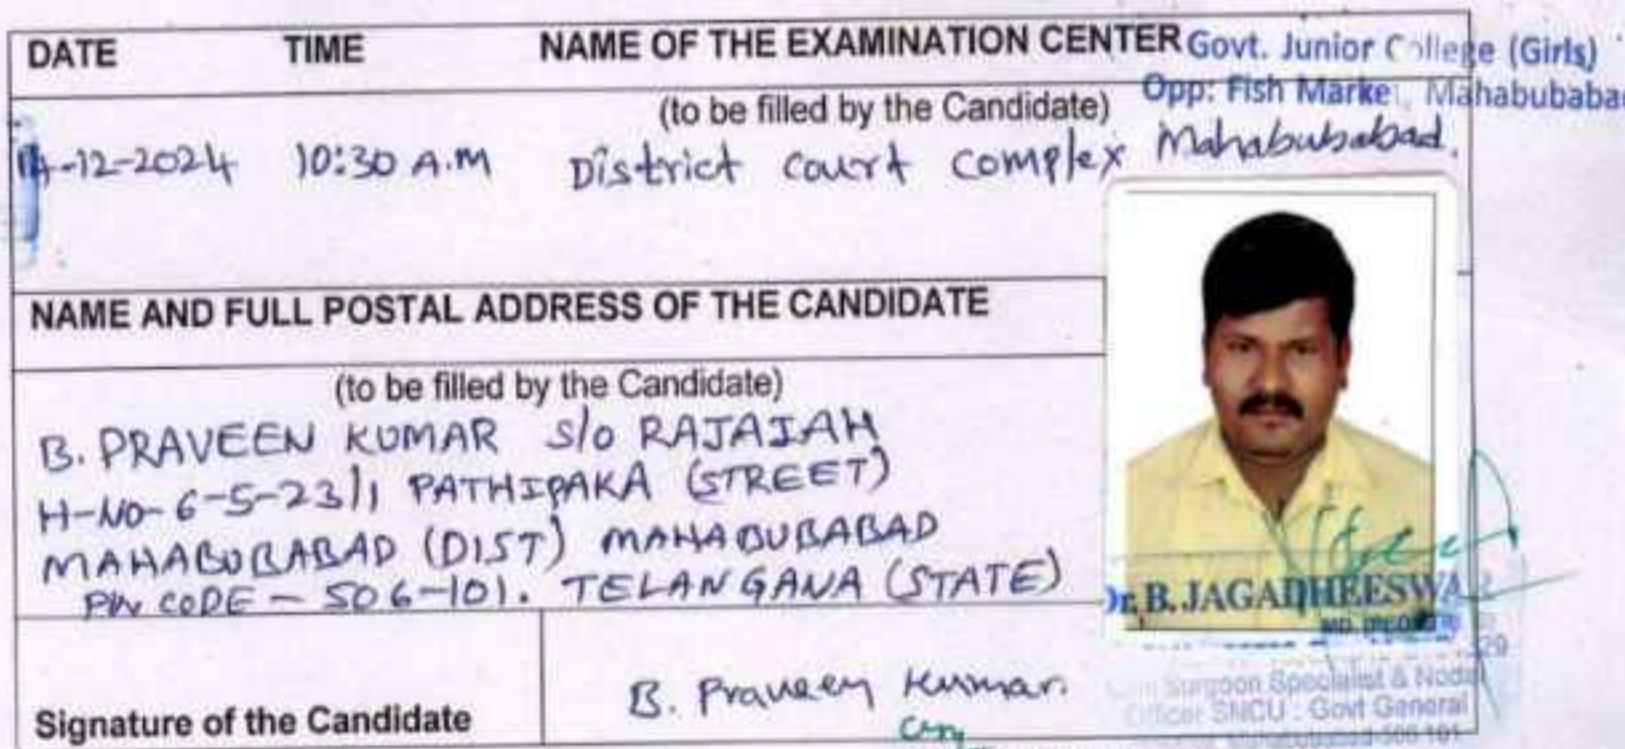 DATE TIME NAME OF THE EXAMINATION CENTER Govt. Junior College (Girls)
(to be filled by the Candidate) Opp: Fish Marke Mahabubabad
-12-2024 10:30 A.M District court complex Mahabubabad.
NAME AND FULL POSTAL ADDRESS OF THE CANDIDATE
(to be filled by the Candidate)
B. PRAVEEN KUMAR S/o RAJAIAH
H-NO-6-5-23/1 PATHIPAKA (STREET)
MAHABUBABAD (DIST) MAHABUBABAD
PIN CODE - 506-101. TELANGANA (STATE)
Dr. B. JAGADHEESWA
Signature of the Candidate B. Praveen Kumar.
Surgeon Specialist & Nodal
Officer SNCU : Govt General